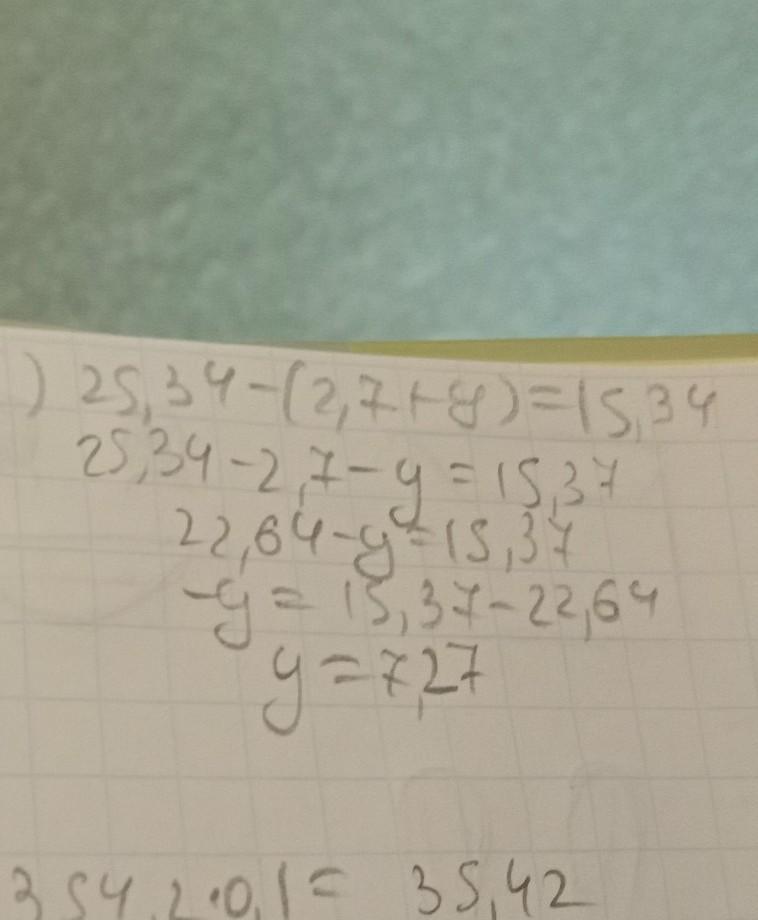 ) 25,34-(2,7+y)=15,34
25,34-2,7-y=15,37
22,64-y=15,37
-y=15,37-22,64
y=7,27
354,2·0,1=35,42